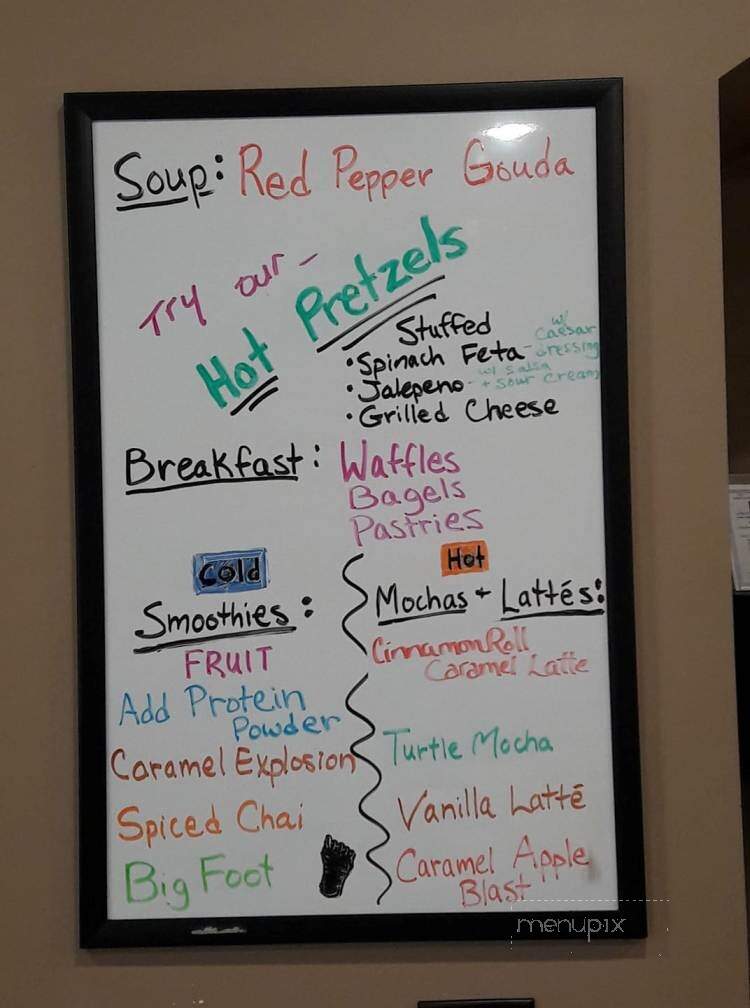 Soup: Red Pepper Gouda
Try our -
Hot Pretzels
Stuffed
• Spinach Feta - w/ Caesar dressing
• Jalepeno - w/ salsa + sour cream
• Grilled Cheese
Breakfast: Waffles
Bagels
Pastries
Cold
Smoothies:
FRUIT
Add Protein
Powder
Caramel Explosion
Spiced Chai
Big Foot
Hot
Mochas + Lattés:
Cinnamon Roll
Caramel Latte
Turtle Mocha
Vanilla Lattē
Caramel Apple
Blast
menupix